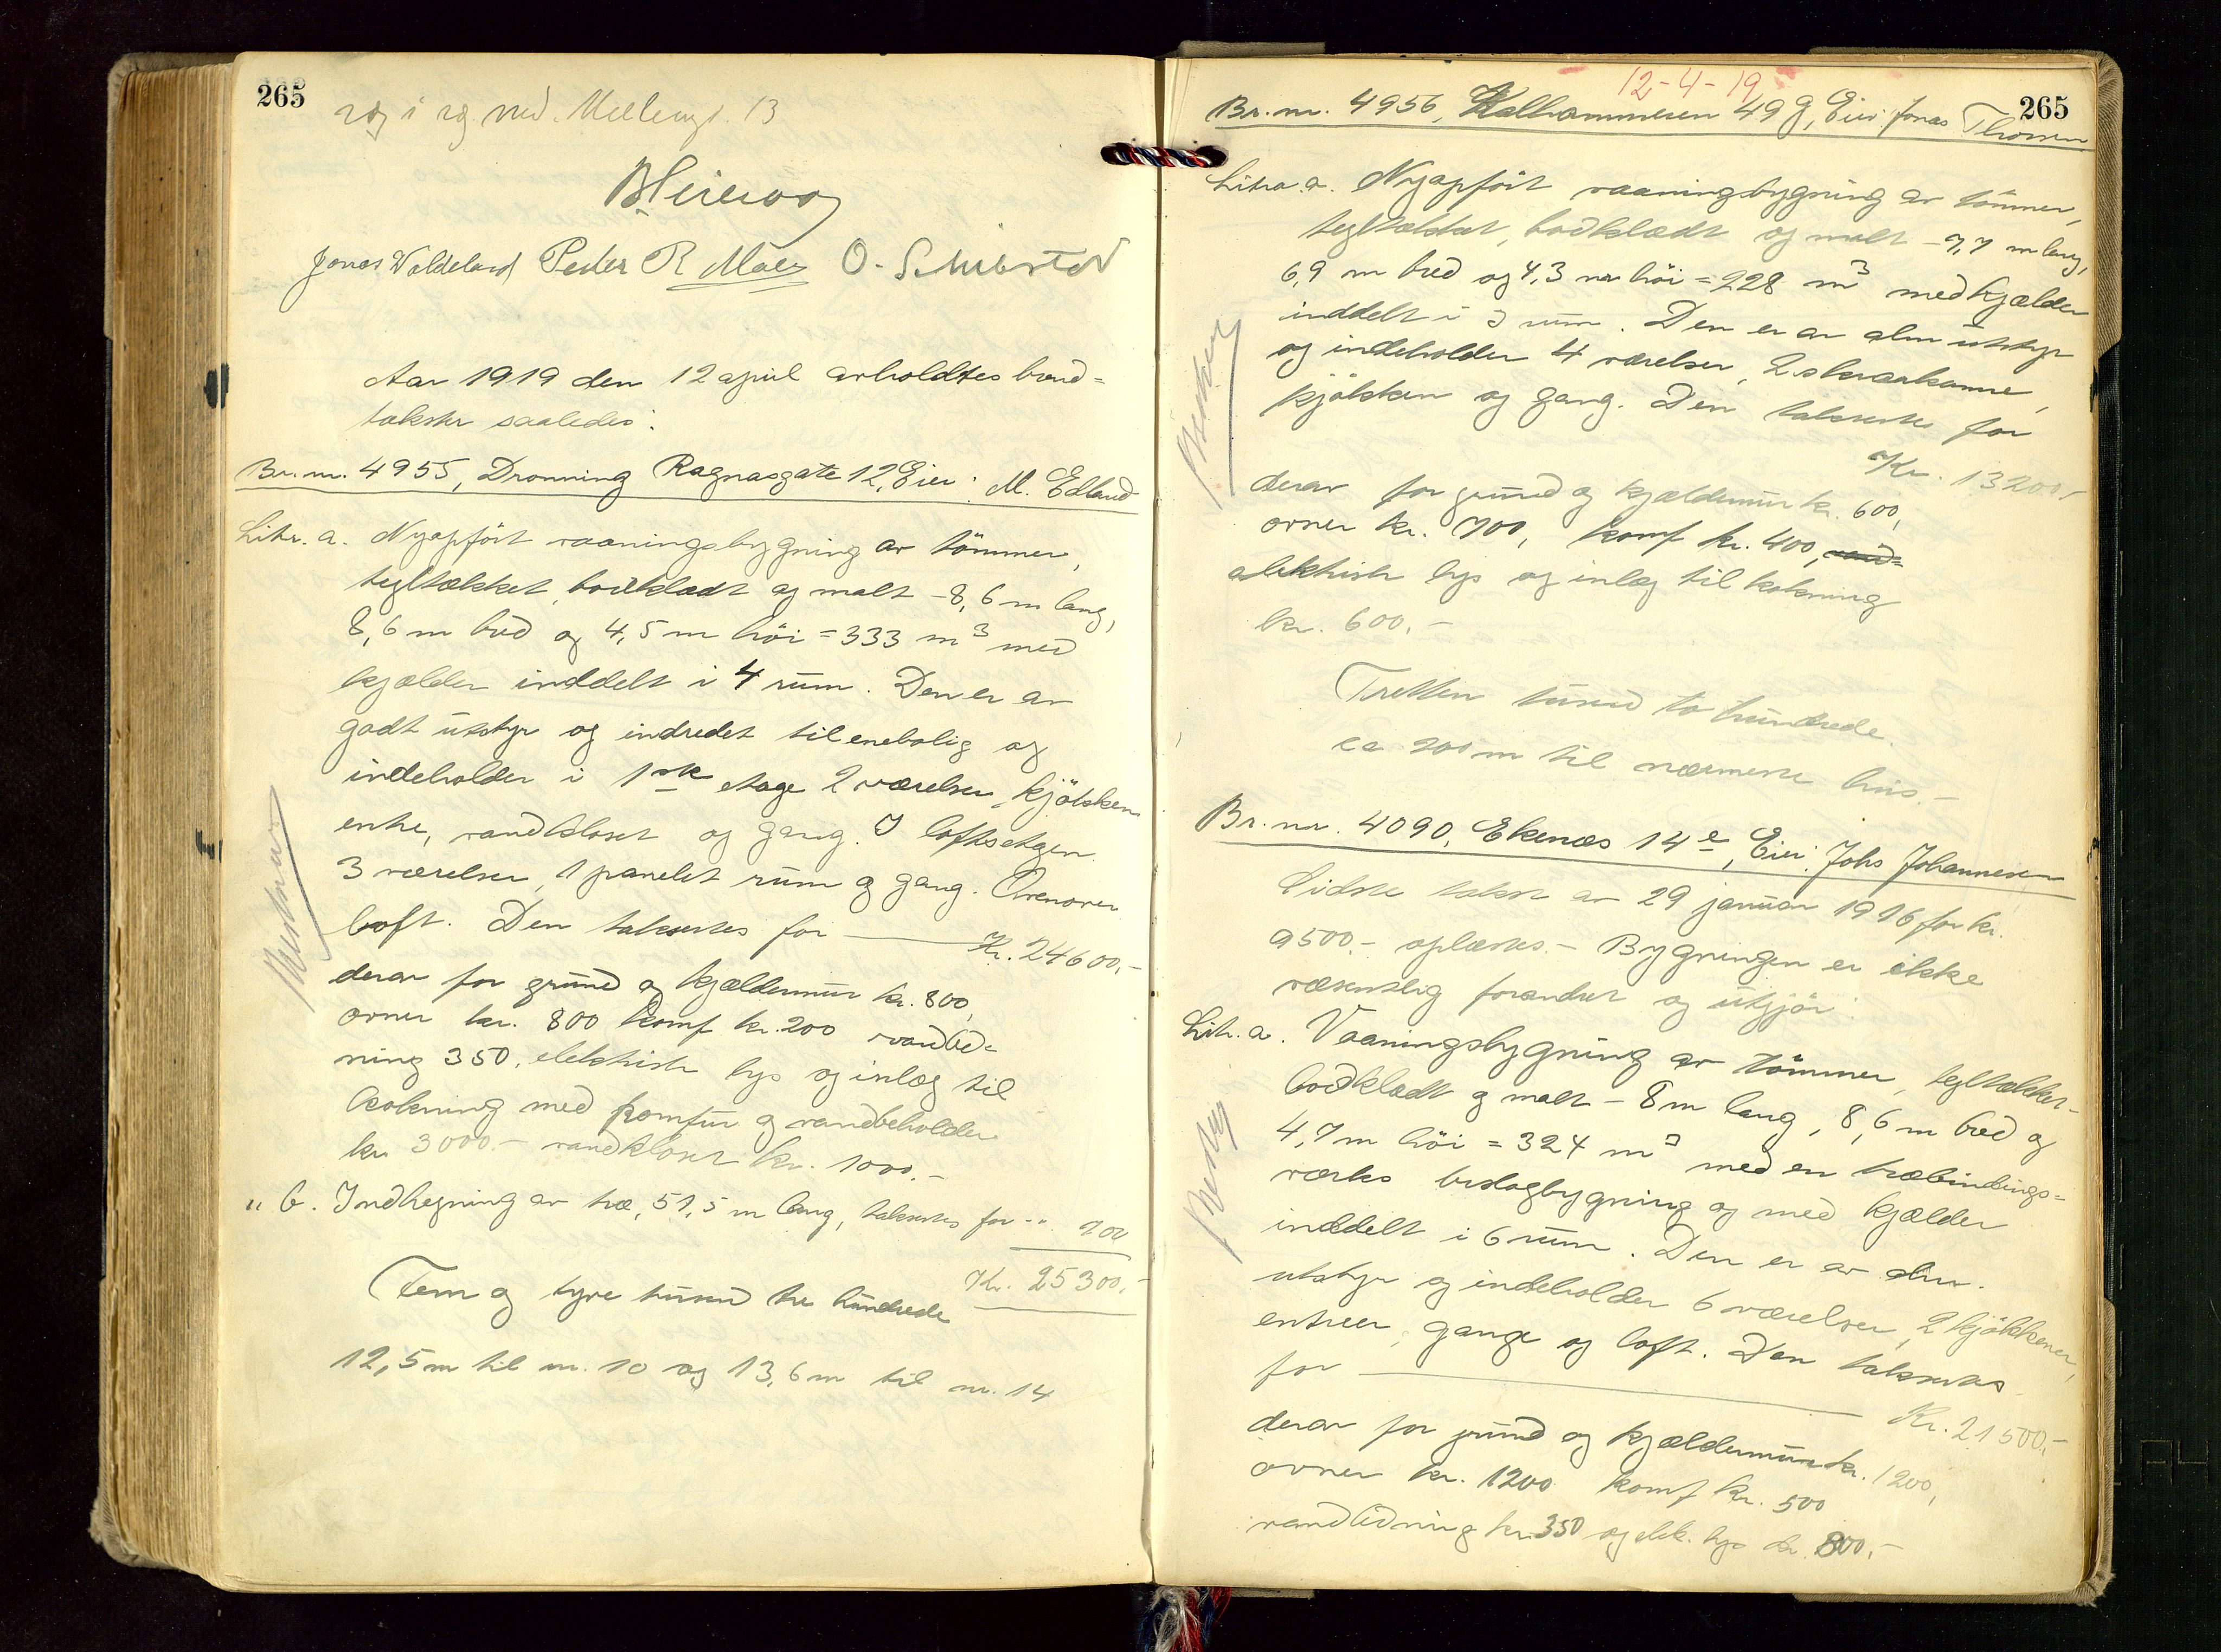 265
og i ng. ned. Mellemgt. 13
Jonas Valdeland Peder R Maeg O. Schibsted
Aar 1919 den 12 april avholdtes brand=
takster saaledes:
Br. nr. 4955, Dronning Ragnasgate 12, Eier: M. Edland
Litr. a. Nyopført vaaningsbygning av tömmer,
tegltækket, bordklædt og malt - 8,6 m lang,
8,6 m bred og 4,5 m höi = 333 m³ med
kjælder inddelt i 4 rum. Den er av
godt utstyr og indredet til enebolig og
indeholder i 1ste etage 2 værelser, kjøkken
entre, vandkloset og gang. I loftsetgen
3 værelser, 1 panelet rum og gang. Ovenover
loft. Den taksertes for Kr. 24600.-
derav for grund og kjældermur kr. 800,
ovner kr. 800 komf kr. 200 vandled=
ning 350, elektrisk lys og inlæg til
kokning med komfur og vandbeholder
kr. 3000.- vandkloset kr. 1000.-
" b. Indhegning av træ, 51,5 m lang, taksertes for - " 700
Kr. 25300.-
Fem og tyve tusind tre hundrede
12,5 m til nr. 10 og 13,6 m til nr. 14
12-4-19
265
Br. nr. 4956, Kalhammeren 49 g, Eier Jonas Thorsen
Litra a. Nyopført vaaningsbygning av tömmer,
tegltækket, bordklædt og malt - 7,7 m lang,
6,9 m bred og 4,3 m höi = 228 m³ med kjælder
inddelt i 3 rum. Den er av alm utstyr
og indeholder 4 værelser, 2 skraakamre,
kjøkken og gang. Den taksertes for
Kr. 13200.-
derav for grund og kjældermur kr. 600,
ovner kr. 700, komf kr. 400,
elektrisk lys og inlæg til kokning
kr. 600.-
Tretten tusind to hundrede
ca 200 m til nærmeste hus.-
Br. nr. 4090, Ekenæs 14 e, Eier: Johs Johannesen
Sidste takst av 29 januar 1916 for kr.
9500.- oplæstes.- Bygningen er ikke
væsentlig forandret og utgjør:
Litr. a. Vaaningsbygning av tömmer, tegltækket-
bordklædt og malt - 8 m lang, 8,6 m bred og
4,7 m höi = 324 m³ med en træbindings=
verks beslagbygning og med kjælder
inddelt i 6 rum. Den er av alm.
utstyr og indeholder 6 værelser, 2 kjøkkener,
entreer, gange og loft. Den taksertes
for Kr. 21500.-
derav for grund og kjældermur kr. 1200,
ovner kr. 1200 komf kr. 500
vandledning kr. 350 og elek. lys kr. 800.-